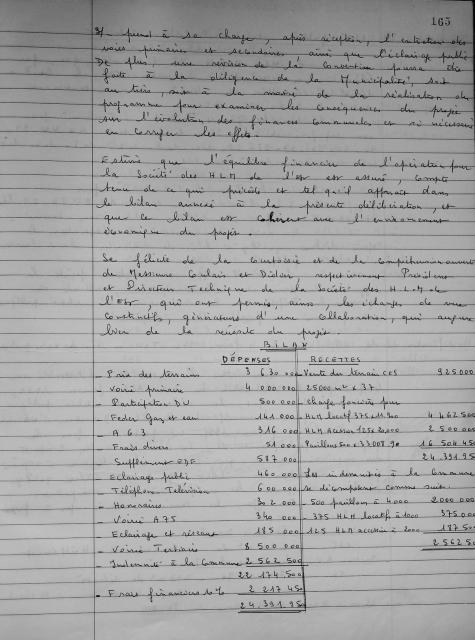 165
3/ prend à sa charge, après réception, l'entretien des
voies primaires et secondaires, ainsi que l'éclairage public
De plus, une révision de la Convention pourra être
faite à la diligence de la Municipalité, soit
au tiers, soit à la moitié de la réalisation du
programme pour examiner les conséquences du projet
sur l'évolution des finances Communales et si nécessaire
en corriger les effets.
Estime que l'équilibre financier de l'opération pour
la Société des HLM de l'Est est assuré, compte
tenu de ce qui précède et tel qu'il apparaît dans
le bilan annexé à la présente délibération, et
que ce bilan est cohérent avec l'environnement
économique du projet.
Se félicite de la Courtoisie et de la Compréhension
de Messieurs et Didier, respectivement Président
et Directeur Technique de la Société des H.L.M de
l'Est, qui ont permis, ainsi, les échanges de vue
Constructifs, générateurs d'une Collaboration, qui augure
bien de la réussite du projet.
BILAN
DÉPENSES RECETTES
- Prix des terrains 3 630 000 - Vente du terrain CES 925 000
- Voirie primaire 4 000 000 25000 m² x 37
- Participation DU 500 000 - Charge foncière pour
Feder Gaz et eau 141 000 - HLM locatif 375 x 11.900 4 462 500
- A 6.3 316 000 HLM Accession 125 x 20.000 2 500 000
- Frais divers 51 000 Pavillons 500 x 33008.90 16 504 450
- Supplément EDF 587 000 24 391 950
- Eclairage public 460 000 Les indemnités à la Commune
- Téléphon. Télévision 600 000 se décomposent comme suit.
- Honoraires 302 000 - 500 pavillon à 4000 2000 000
- Voirie A.75 340 000 - 375 HLM locatif à 1000 375 000
- Eclairage et réseaux 185 000 - 125 HLM accession à 187 500
- Voirie Tertiaire 8 500 000 2 562 500
- Indemnité à la Commune 2 562 500
22 174 500
- Frais financiers 10% 2 217 450
24 391 950